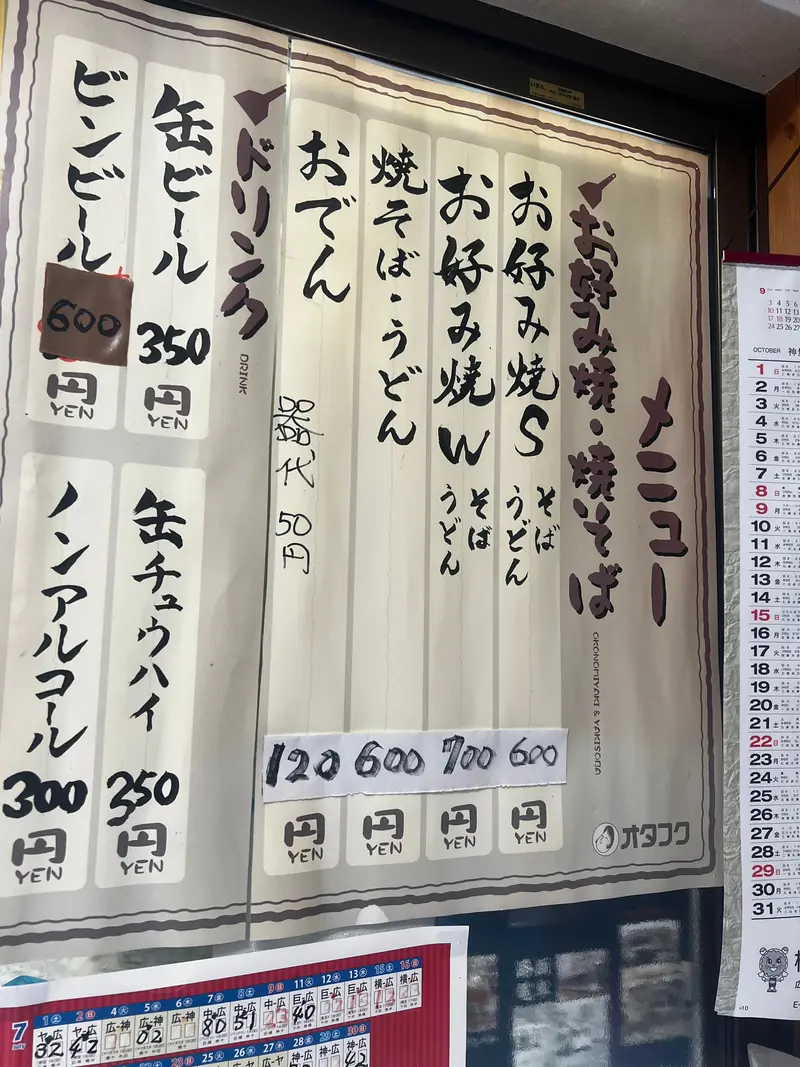 メニュー
お好み焼・焼そば
OKONOMIYAKI & YAKISOBA
お好み焼S そば うどん 600 円 YEN
お好み焼W そば うどん 700 円 YEN
焼そば・うどん 600 円 YEN
おでん 器代 50円 120 円 YEN
オタフク
ドリンク
DRINK
缶ビール 350 円 YEN
ビンビール 600 円 YEN
缶チュウハイ 350 円 YEN
ノンアルコール 300 円 YEN
9
3 4 5 6
10 11 12 13
17 18 19 20
24 25 26 27
OCTOBER
1 日
2 月
3 火
4 水
5 木
6 金
7 土
8 日
9 月
10 火
11 水
12 木
13 金
14 土
15 日
16 月
17 火
18 水
19 木
20 金
21 土
22 日
23 月
24 火
25 水
26 木
27 金
28 土
29 日
30 月
31 火
7
1 土 2 日 4 火 5 水 6 木 7 金 8 土 9 日 11 火 12 水 13 木 15 土 16 日
ヤ-広 ヤ-広 広-神 広-神 広-神 中-広 中-広 中-広 広-巨 巨-広 巨-広 横-広 横-広
25 火 26 水 27 木 28 金 29 土 30 日